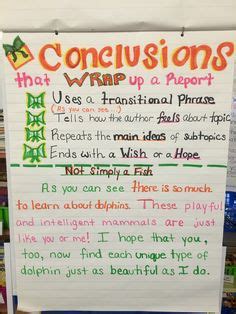 Conclusions
that WRAP up a Report
Uses a transitional Phrase
(As you can see...)
Tells how the author feels about topic
Repeats the main ideas of subtopics
Ends with a Wish or a Hope
Not Simply a Fish
As you can see there is so much
to learn about dolphins. These playful
and intelligent mammals are just
like you or me! I hope that you,
too, now find each unique type of
dolphin just as beautiful as I do.